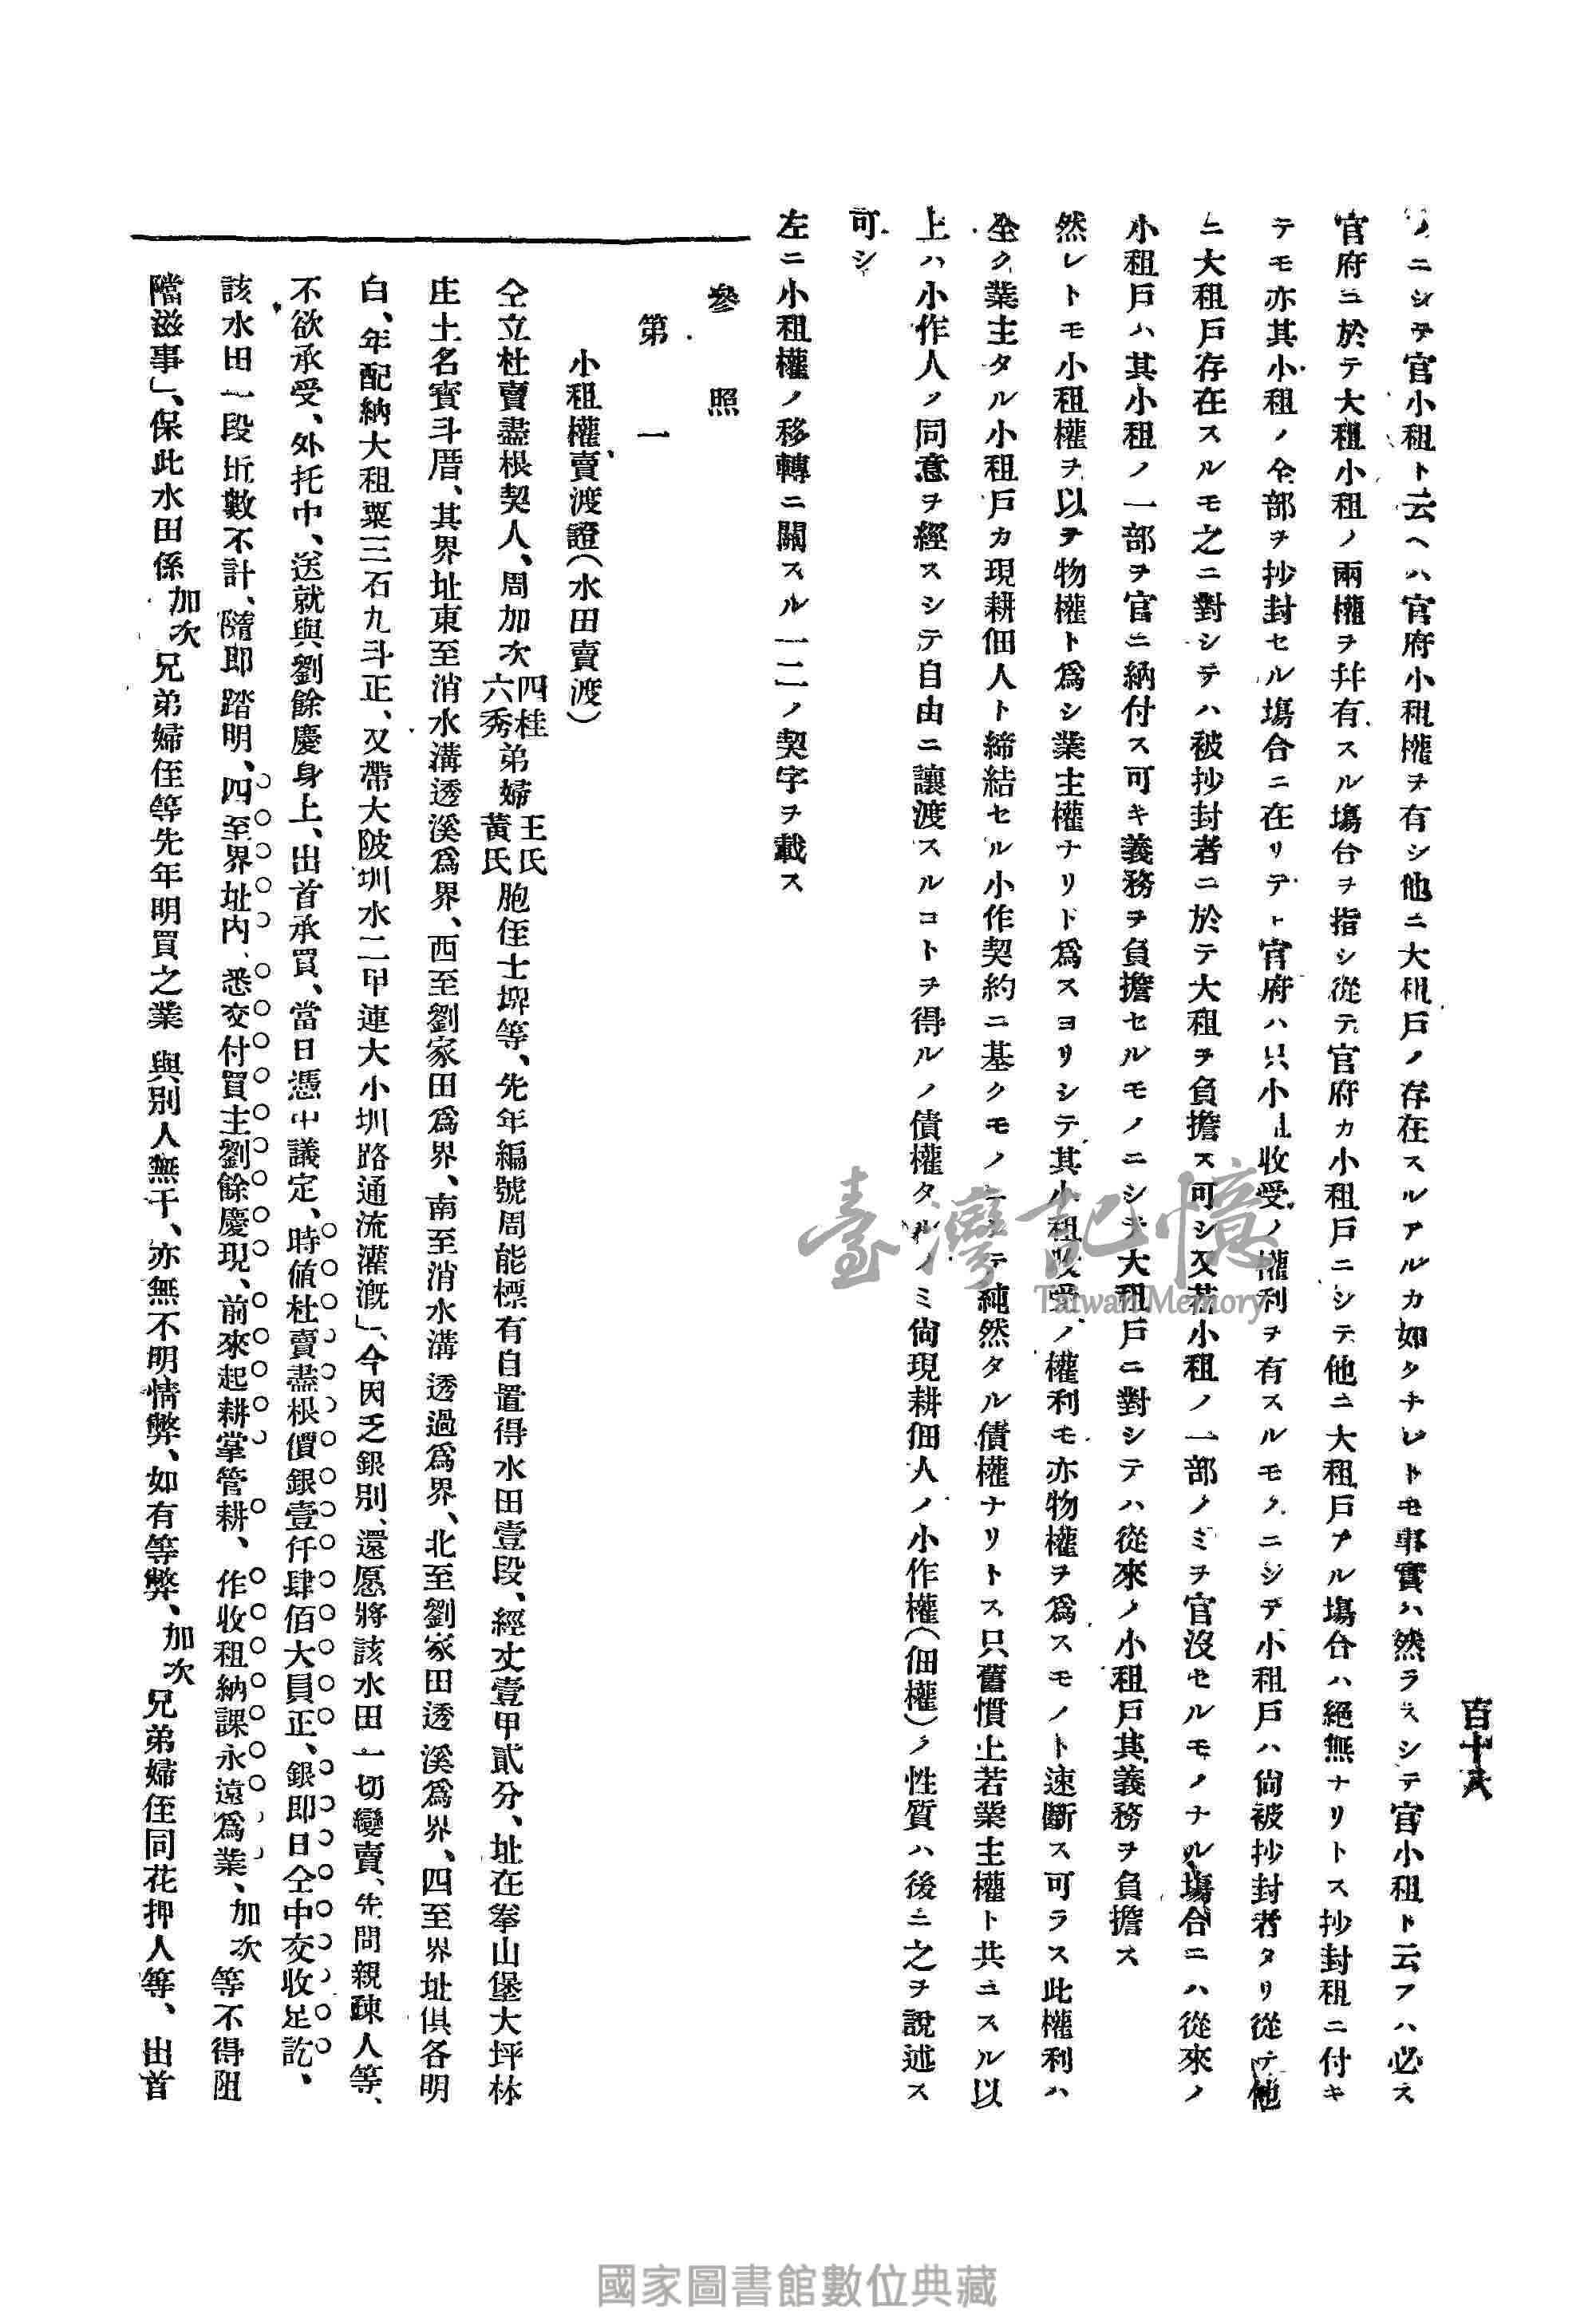 百十六
ノニシテ官小租ト云ヘハ官府小租權ヲ有シ他ニ大租戶ノ存在スルアルカ如クナレトモ事實ハ然ラスシテ官小租ト云フハ必ス
官府ニ於テ大租小租ノ兩權ヲ幷有スル塲合ヲ指シ從テ官府カ小租戶ニシテ他ニ大租戶アル塲合ハ絕無ナリトス抄封租ニ付キ
テモ亦其小租ノ全部ヲ抄封セル塲合ニ在リテト官府ハ只小租收受ノ權利ヲ有スルモノニシテ小租戶ハ尙被抄封者タリ從テ他
ニ大租戶存在スルモ之ニ對シテハ被抄封者ニ於テ大租ヲ負擔ス可シ又若小租ノ一部ノミヲ官沒セルモノナル塲合ニハ從來ノ
小租戶ハ其小租ノ一部ヲ官ニ納付ス可キ義務ヲ負擔セルモノニシテ大租戶ニ對シテハ從來ノ小租戶其義務ヲ負擔ス
然レトモ小租權ヲ以テ物權ト爲シ業主權ナリト爲スヨリシテ其小租收受ノ權利モ亦物權ヲ爲スモノト速斷ス可ラス此權利ハ
全ク業主タル小租戶カ現耕佃人ト締結セル小作契約ニ基クモノニシテ純然タル債權ナリトス只舊慣上若業主權ト共ニスル以
上ハ小作人ノ同意ヲ經スシテ自由ニ讓渡スルコトヲ得ルノ債權タルノミ尙現耕佃人ノ小作權(佃權)ノ性質ハ後ニ之ヲ說述ス
可シ
左ニ小租權ノ移轉ニ關スル一二ノ契字ヲ載ス
參照
第一
小租權賣渡證(水田賣渡)
仝立杜賣盡根契人、周加次四桂六秀弟婦王氏黃氏胞侄士埤等、先年編號周能標有自置得水田壹段、經丈壹甲貳分、址在拳山堡大坪林
庄土名寳斗厝、其界址東至消水溝透溪爲界、西至劉家田爲界、南至消水溝透過爲界、北至劉家田透溪爲界、四至界址俱各明
白、年配納大租粟三石九斗正、又帶大陂圳水二甲連大小圳路通流灌漑」、今因乏銀別、還愿將該水田一切變賣、先問親疎人等、
不欲承受、外托中、送就與劉餘慶身上、出首承買、當日憑中議定、時値杜賣盡根價銀壹仟肆佰大員正、銀卽日仝中交收足訖、
該水田一段坵數不計、隨卽踏明、四至界址內、悉交付買主劉餘慶現、前來起耕掌管耕、作收租納課永遠爲業、加次等不得阻
擋滋事」、保此水田係加次兄弟婦侄等先年明買之業與別人無干、亦無不明情弊、如有等弊、加次兄弟婦侄同花押人等、出首
臺灣記憶
Taiwan Memory
國家圖書館數位典藏